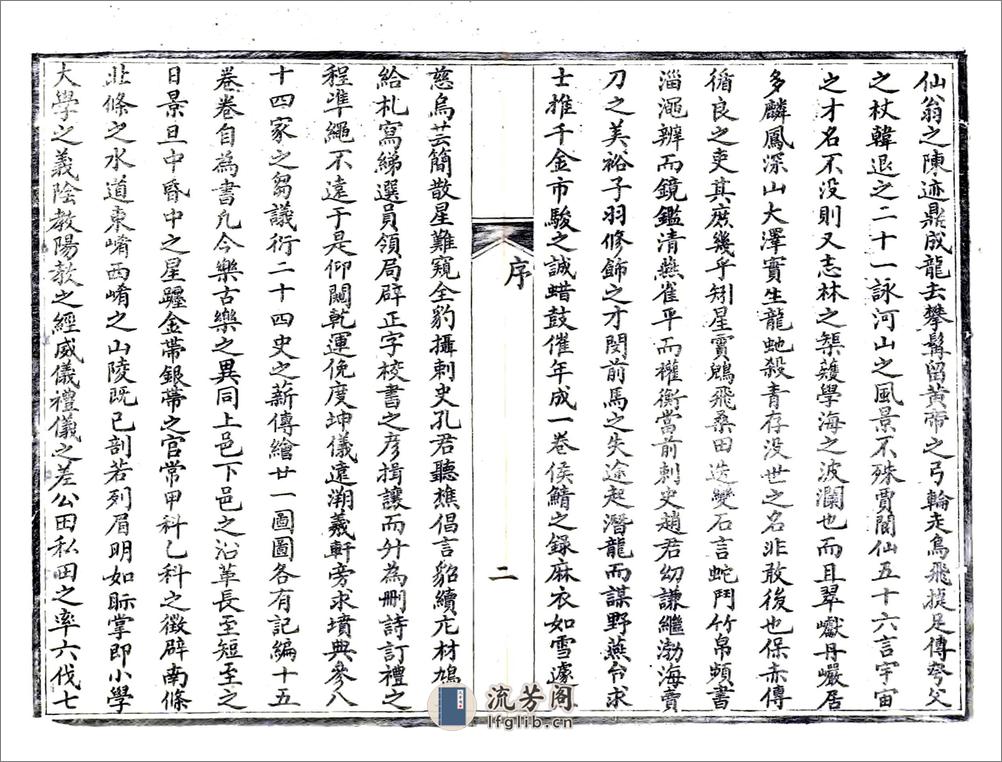 仙翁之陳迹鼎成龍去攀髯留黃帝之弓輪走烏飛提足傳夸父
之杖韓退之二十一詠河山之風景不殊賈閬仙五十六言宇宙
之才名不沒則又志林之榘矱學海之波瀾也而且翠巘丹巖居
多麟鳳深山大澤實生龍虵殺青存沒世之名非敢後也保赤傳
循良之吏其庶幾乎矧星霣鶂飛桑田迭變石言蛇鬥竹帛頻書
淄澠辨而鏡鑑清燕雀平而權衡當前刺史趙君幼謙繼渤海賣
刀之美裕子羽修飾之才閔前馬之失途起潛龍而謀野燕台求
士推千金市駿之誠蜡鼓催年成一卷侯鯖之錄麻衣如雪遽
序
二
慈烏芸簡散星難窺全豹攝刺史孔君聽樵倡言貂續庀材鳩
給札寫綈選員領局辟正字校書之彥揖讓而升為刪詩訂禮之
程準繩不遠于是仰闚乾運俛度坤儀遠溯羲軒旁求墳典參八
十四家之芻議衍二十四史之薪傳繪廿一圖圖各有記編十五
卷卷自為書凡今樂古樂之異同上邑下邑之沿革長至短至之
日景旦中昏中之星躔金帶銀帶之官常甲科乙科之徵辟南條
北條之水道東崤西崤之山陵既已剖若列眉明如眎掌即小學
大學之義陰教陽教之經威儀禮儀之差公田私田之率六伐七
流芳阁
lfglib.cn